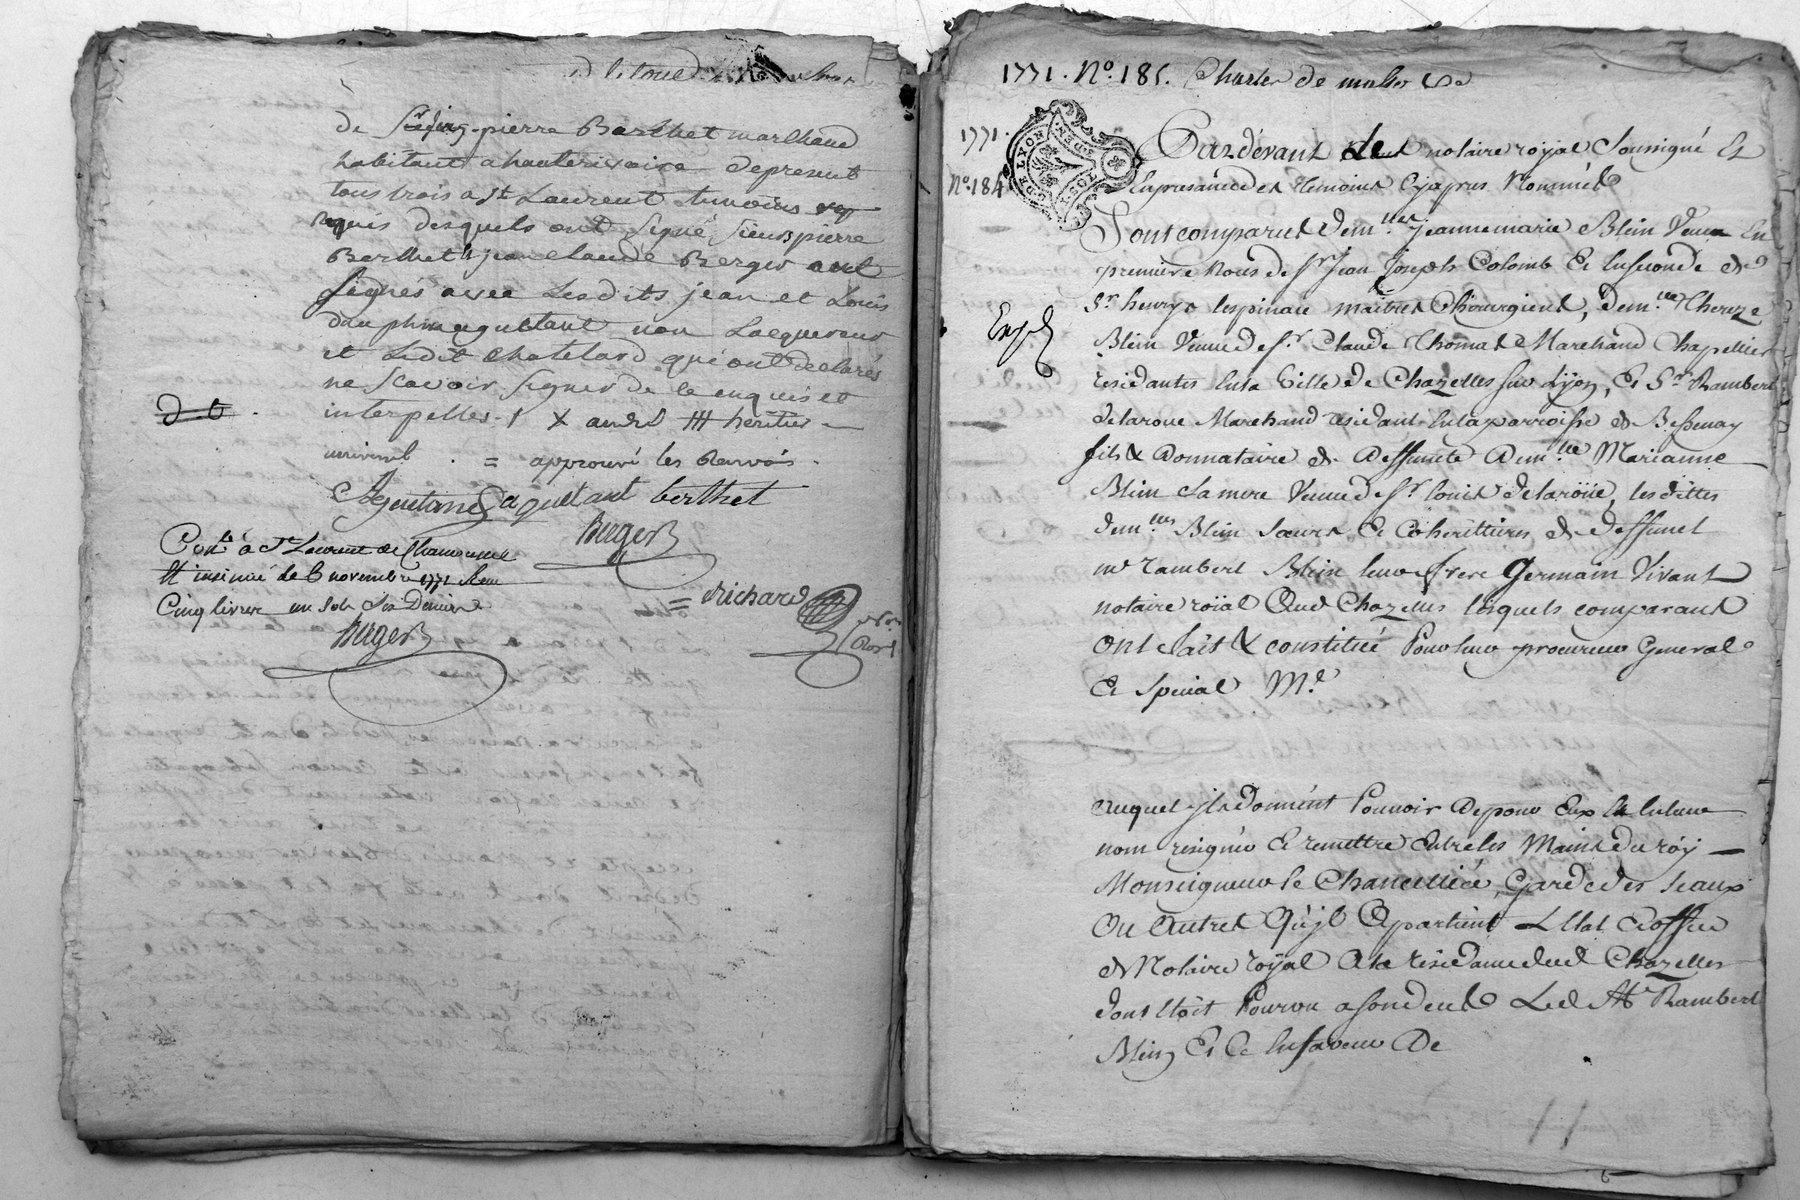 de Sr pierre Berthet marchand
habitant a hauterivoire de present
tous trois a St Laurent temoins
Requis desquels ont signé Sieurs pierre
Berthet jean claude Berger ont
signés avec Lesdits jean et Louis
non Lacquereur
et Ledit Chatelard qui ont declarés
ne scavoir signer de ce enquis et
interpelles heritier
= approuvé les Renvois
aguetant berthet
Berger
Conté. à St Laurent de Chamousset
et insinué le 6 novembre 1771 Reçu
Cinq livres un sols six Deniers
Berger
= Richard
1771. No. 185. Charles de
1771.
No. 184
DE LYON
Pardevant le notaire royal Soussigné Et
En presance des temoins Cy apres Nommés
Sont comparus demlle jeanne marie Blein Veuve En
premiere Noces de sr Jean Joseph Colomb Et En seconde de
Sr henry lespinasse maitres Chirurgiens, demlle Thereze
Blein Veuve de sr Claude Thomas Marchand Chapellier
residantes En la Ville de Chazelles sur Lyon, Et Sr Rambert
delaroue Marchand residant En la parroisse de Bessenay
fils & Donnataire de Deffunte Demlle Marianne
Blein sa mere Veuve de sr louis delaroüe, les dittes
demlles Blein soeurs Et Coherittieres de deffunct
me rambert Blein leur frere Germain Vivant
notaire roïal Aud Chazelles lesquels comparants
Ont fait & constitué Pour leur procureur General
Et Special Me
Auquel ils donnent Pouvoir de pour Eux & En leur
nom resigner Et remettre Entre les Mains du roy
Monseigneur le Chancellier, Garde des Seaux
Ou Autres Qu'il Apartient L'Etat Et office
de Notaire royal A la residance dud Chazelles
dont Etoit Pourvu a son deces Led Me Rambert
Blein Et Ce En faveur De